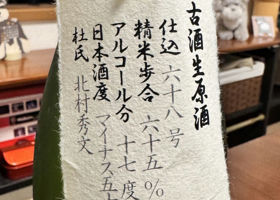 古酒生原酒
仕込 六十八号
精米歩合 六十五%
アルコール分 十七度
日本酒度 マイナス五
杜氏 北村秀文